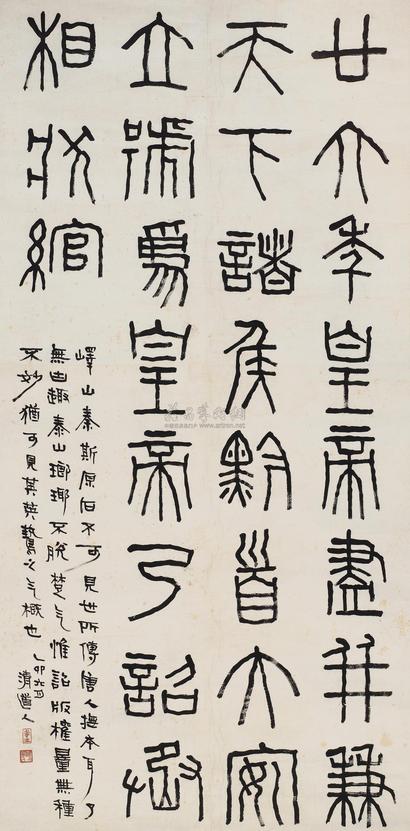 廿六年皇帝盡并兼
天下諸侯黔首大安
立號為皇帝乃詔丞
相狀綰
嶧山秦斯原石不可見世所傳唐人撫本耳了
無古趣泰山瑯琊不脫楚气惟詔版權量無種
不妙猶可見其英鷙之气概也乙卯六月
清道人